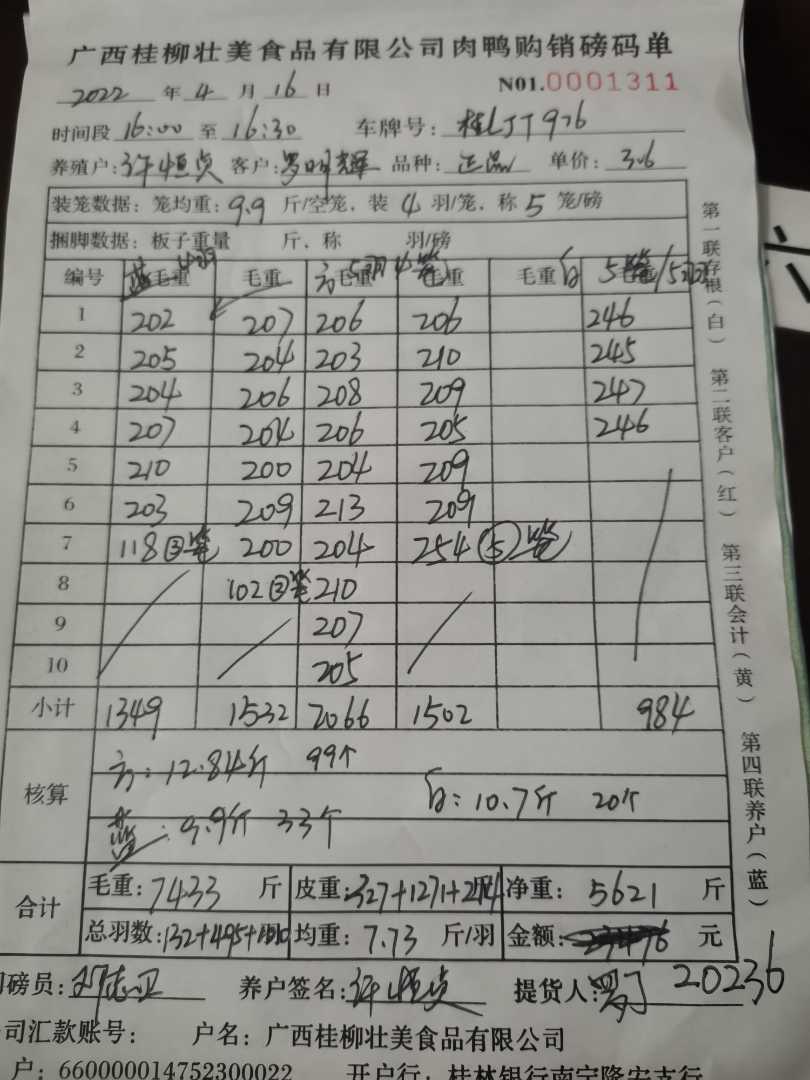 广西桂柳壮美食品有限公司肉鸭购销磅码单
2022 年 4 月 16 日 N01.0001311
时间段 16:00 至 16:30 车牌号:
养殖户: 许恒贞 客户: 罗明辉 品种: 正品 单价: 3.6
装笼数据: 笼均重: 9.9 斤/空笼, 装 4 羽/笼, 称 5 笼/磅
捆脚数据: 板子重量 斤, 称 羽/磅
编号 毛重 毛重 毛重 毛重 毛重
1 202 207 206 206 246
2 205 204 203 210 245
3 204 206 208 209 247
4 207 204 206 205 246
5 210 200 204 209
6 203 209 213 209
7 118 ③笼 200 204 254 ⑤笼
8 102 210
9 207
10 205
小计 1349 1532 2066 1502 984
核算
方: 12.84斤 99个
白: 10.7斤 20个
蓝: 9.9斤 33个
合计
毛重: 7433 斤 皮重: 327+1271+214 净重: 5621 斤
总羽数: 132+495+100 均重: 7.73 斤/羽 金额: 元
20236
磅员: 养户签名: 许恒贞 提货人:
司汇款账号: 户名: 广西桂柳壮美食品有限公司
户: 660000014752300022 开户行: 桂林银行南宁隆安支行
第一联存根(白) 第二联客户(红) 第三联会计(黄) 第四联养户(蓝)